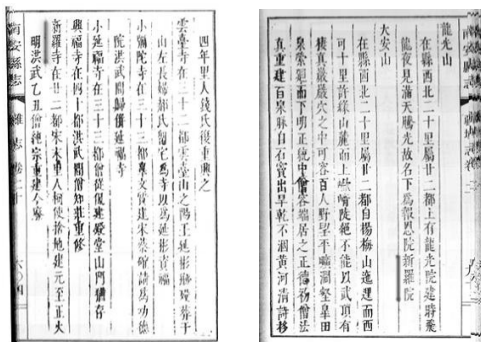 龍光山
在縣西北二十里屬廿二都上有龍光院建時飛
龍夜見滿天騰光故名下為報恩院新羅院
大安山
在縣西北二十里屬廿二都自楊梅山迤邐而西
可十里許緣山麓而上陡絕不能以武頂有
棲真巖巖穴之中可容百人野望平曠澗壑阜田
而下明正統中僧居之正德初僧法
真重建百泉脉自石竇出旱乾不涸黃河清詩移
四年里人錢氏後重興之
雲臺寺在十二都雲臺山之陽王延彬葬于
山左長婦鄭氏捨宅為寺以為延彬資福
小彌陀寺在三十三都建宋葉請為功德
院洪武間歸併延福寺
小延福寺在三十三都僧從復建殿堂山門猶存
興福寺在四十都洪武間僧如莊重修
新羅寺在廿二都宋末里人柯使捨地建元至正火
明洪武乙丑僧純宗重建今廢
南安縣志 雜志 卷二十